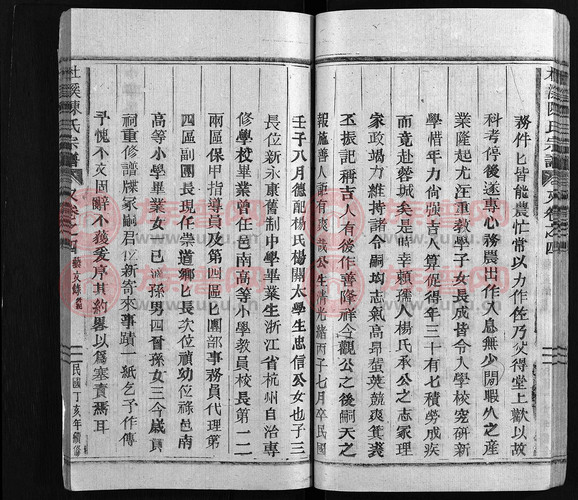 務件匕皆能農忙常以力作佐乃父得堂上歡以故
科考停後遂專心務農出作入息無少閒暇久之產
業隆起尤注重教學子女長成皆令入學校究研新
學惜年力尚强吉人算促得年三十有七積勞成疾
而竟赴蓉城矣是時幸賴孺人楊氏承公之志冢理
家政竭力維持諸令嗣均志氣高昂蜚英競爽箕裘
丕振記稱吉人有後作善降祥今觀公之後嗣天之
報施善人詎有爽哉公生清光緒丙子七月卒民國
杜溪陳氏宗譜
文卷之四
壬子八月德配楊氏楊開太學生忠信公女也子三
長位新永康舊制中學畢業生浙江省杭州自治專
修學校畢業曾任邑南高等小學教員校長第一二
兩區保甲指導員及第四區匕團部事務員代理第
四區副團長現任崇道鄉匕長次位禎幼位祿邑南
高等小學畢業女一已適孫男四爾孫女三今歲眞
祠重修譜牒冢嗣君位新寄來事蹟一紙乞予作傳
予愧不文固辭不獲爰序其約畧以爲塞責焉耳
杜溪陳氏宗譜
文卷之四
藝文錄
民國丁亥年續修